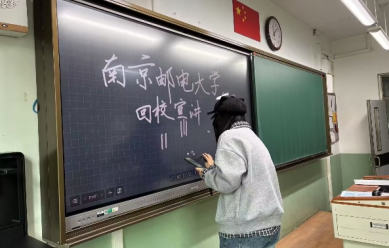 南京邮电大学
回校宣讲